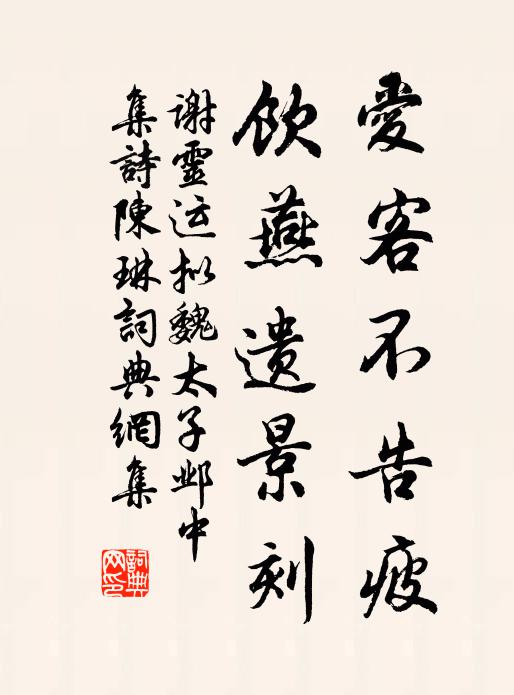 愛客不告疲
飲燕遗景刻
谢靈运拟魏太子邺中
集詩陳琳詞典網集
詞典网印